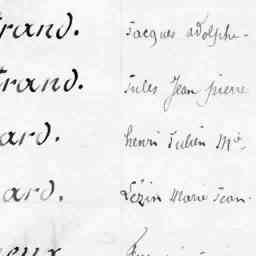 trand. Jacques adolphe.
trand. Jules Jean pierre
ard. henri Julien Mie,
ard. Lézin Marie Jean.